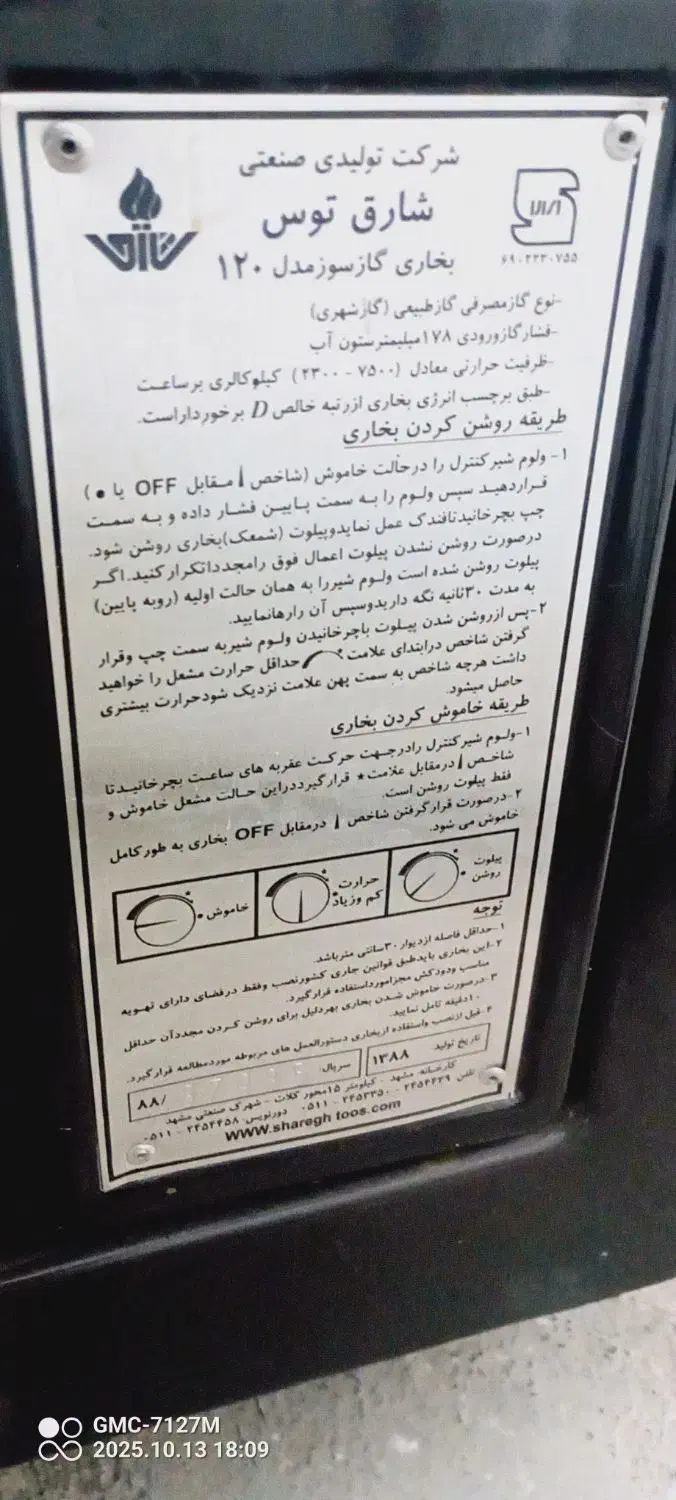 شرکت تولیدی صنعتی
شارق توس
بخاری گازسوزمدل ۱۲۰
۶۹۰۲۲۳۰۷۵۵
-نوع گازمصرفی گازطبیعی (گازشهری)
-فشارگازورودی ۱۷۸میلیمترستون آب
-ظرفیت حرارتی معادل (۷۵۰۰ - ۲۳۰۰) کیلوکالری برساعت
-طبق برچسب انرژی بخاری ازرتبه خالص D برخورداراست.
طریقه روشن کردن بخاری
۱- ولوم شیرکنترل را درحالت خاموش (شاخص مقابل OFF یا ●)
قراردهید سپس ولوم را به سمت پایین فشار داده و به سمت
چپ بچرخانیدتافندک عمل نمایدوپیلوت (شمعک)بخاری روشن شود.
درصورت روشن نشدن پیلوت اعمال فوق رامجدداتکرارکنید.اگر
پیلوت روشن شده است ولوم شیررا به همان حالت اولیه (روبه پایین)
به مدت ۳۰ثانیه نگه داریدوسپس آن رارهانمایید.
۲-پس ازروشن شدن پیلوت باچرخانیدن ولوم شیربه سمت چپ وقرار
گرفتن شاخص درابتدای علامت حداقل حرارت مشعل را خواهید
داشت هرچه شاخص به سمت پهن علامت نزدیک شودحرارت بیشتری
حاصل میشود.
طریقه خاموش کردن بخاری
۱-ولوم شیرکنترل رادرجهت حرکت عقربه های ساعت بچرخانیدتا
شاخص درمقابل علامت ★ قرارگیرددراین حالت مشعل خاموش و
فقط پیلوت روشن است.
۲-درصورت قرارگرفتن شاخص درمقابل OFF بخاری به طورکامل
خاموش می شود.
پیلوت
روشن
حرارت
کم وزیاد
خاموش
توجه
۱-حداقل فاصله ازدیوار۳۰سانتی مترباشد.
۲-این بخاری بایدطبق قوانین جاری کشورنصب وفقط درفضای دارای تهویه
مناسب ودودکش مجزامورداستفاده قرارگیرد.
۳-درصورت خاموش شدن بخاری بهردلیل برای روشن کردن مجددآن حداقل
۱۰دقیقه تامل نمایید.
۴-قبل ازنصب واستفاده ازبخاری دستورالعمل های مربوطه موردمطالعه قرارگیرد.
تاریخ تولید ۱۳۸۸
سریال: ۸۸/
کارخانه: مشهد - کیلومتر ۱۵محور کلات - شهرک صنعتی مشهد
تلفن ۲۴۵۴۴۳۹ - ۲۴۵۳۳۵۰ - ۰۵۱۱ دورنویس: ۲۴۵۴۴۵۸ - ۰۵۱۱
www.sharegh toos.com
GMC-7127M
2025.10.13 18:09